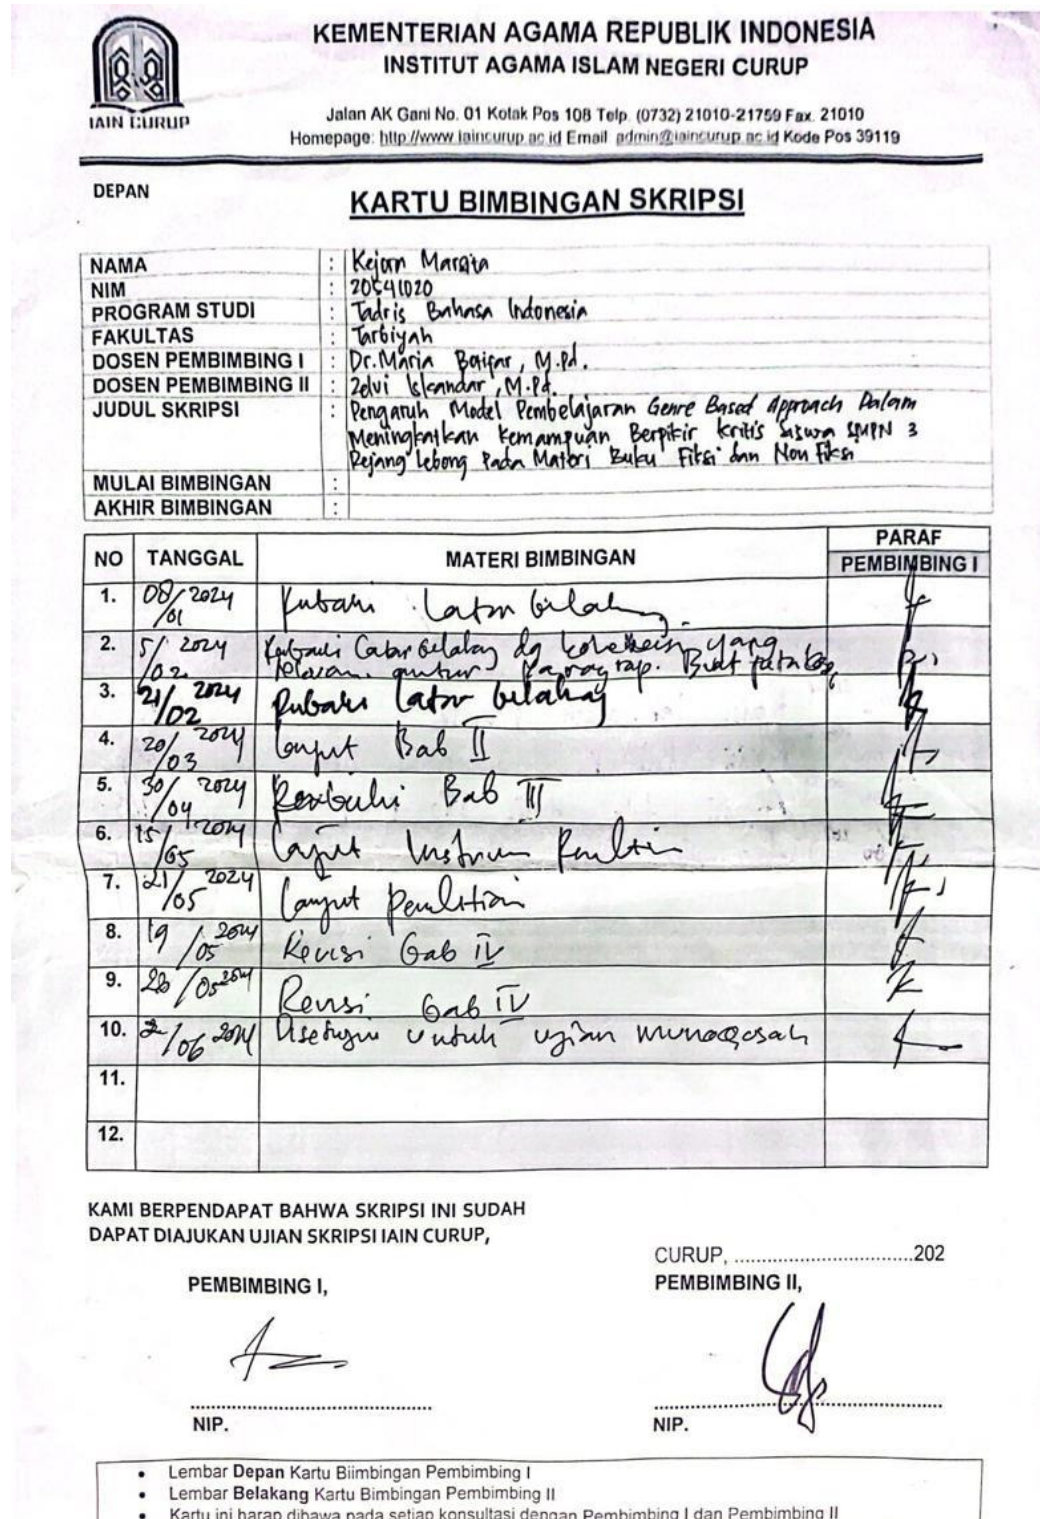 KEMENTERIAN AGAMA REPUBLIK INDONESIA
INSTITUT AGAMA ISLAM NEGERI CURUP
IAIN CURUP
Jalan AK Gani No. 01 Kotak Pos 108 Telp. (0732) 21010-21759 Fax. 21010
Homepage: http://www.iaincurup.ac.id Email admin@iaincurup.ac.id Kode Pos 39119
DEPAN
KARTU BIMBINGAN SKRIPSI
NAMA :
NIM : 20541020
PROGRAM STUDI : Tadris Bahasa Indonesia
FAKULTAS : Tarbiyah
DOSEN PEMBIMBING I : Dr. Maria Botifar, M.Pd.
DOSEN PEMBIMBING II : Zelvi Iskandar, M.Pd.
JUDUL SKRIPSI : Pengaruh Model Pembelajaran Genre Based Approach Dalam
Meningkatkan Kemampuan Berpikir Kritis Siswa SMPN 3
Rejang Lebong Pada Materi Buku Fiksi dan Non Fiksi
MULAI BIMBINGAN :
AKHIR BIMBINGAN :
NO TANGGAL MATERI BIMBINGAN PARAF
PEMBIMBING I
1. 08/01 2024 latar belakang
2. 5/02 2024 latar belakang dg yang
relevan. antar paragrap. Buat
3. 21/02 2024 latar belakang
4. 20/03 2024 Lanjut Bab II
5. 30/04 2024 Bab III
6. 15/05 2024 Lanjut
7. 21/05 2024 Lanjut penelitian
8. 19/05 2024 Revisi bab IV
9. 28/05 2024 Revisi bab IV
10. 2/06 2024 Disetujui untuk ujian munaqosah
11.
12.
KAMI BERPENDAPAT BAHWA SKRIPSI INI SUDAH
DAPAT DIAJUKAN UJIAN SKRIPSI IAIN CURUP,
CURUP, ................................202
PEMBIMBING I, PEMBIMBING II,
NIP. NIP.
• Lembar Depan Kartu Biimbingan Pembimbing I
• Lembar Belakang Kartu Bimbingan Pembimbing II
• Kartu ini harap dibawa pada setiap konsultasi dengan Pembimbing I dan Pembimbing II